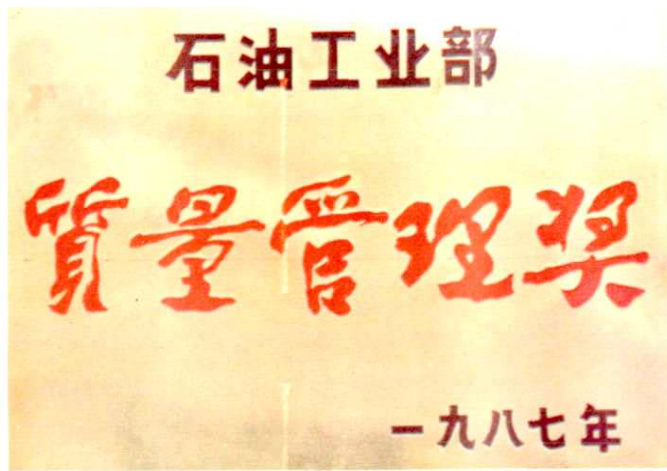 石油工业部
質量管理奖
一九八七年